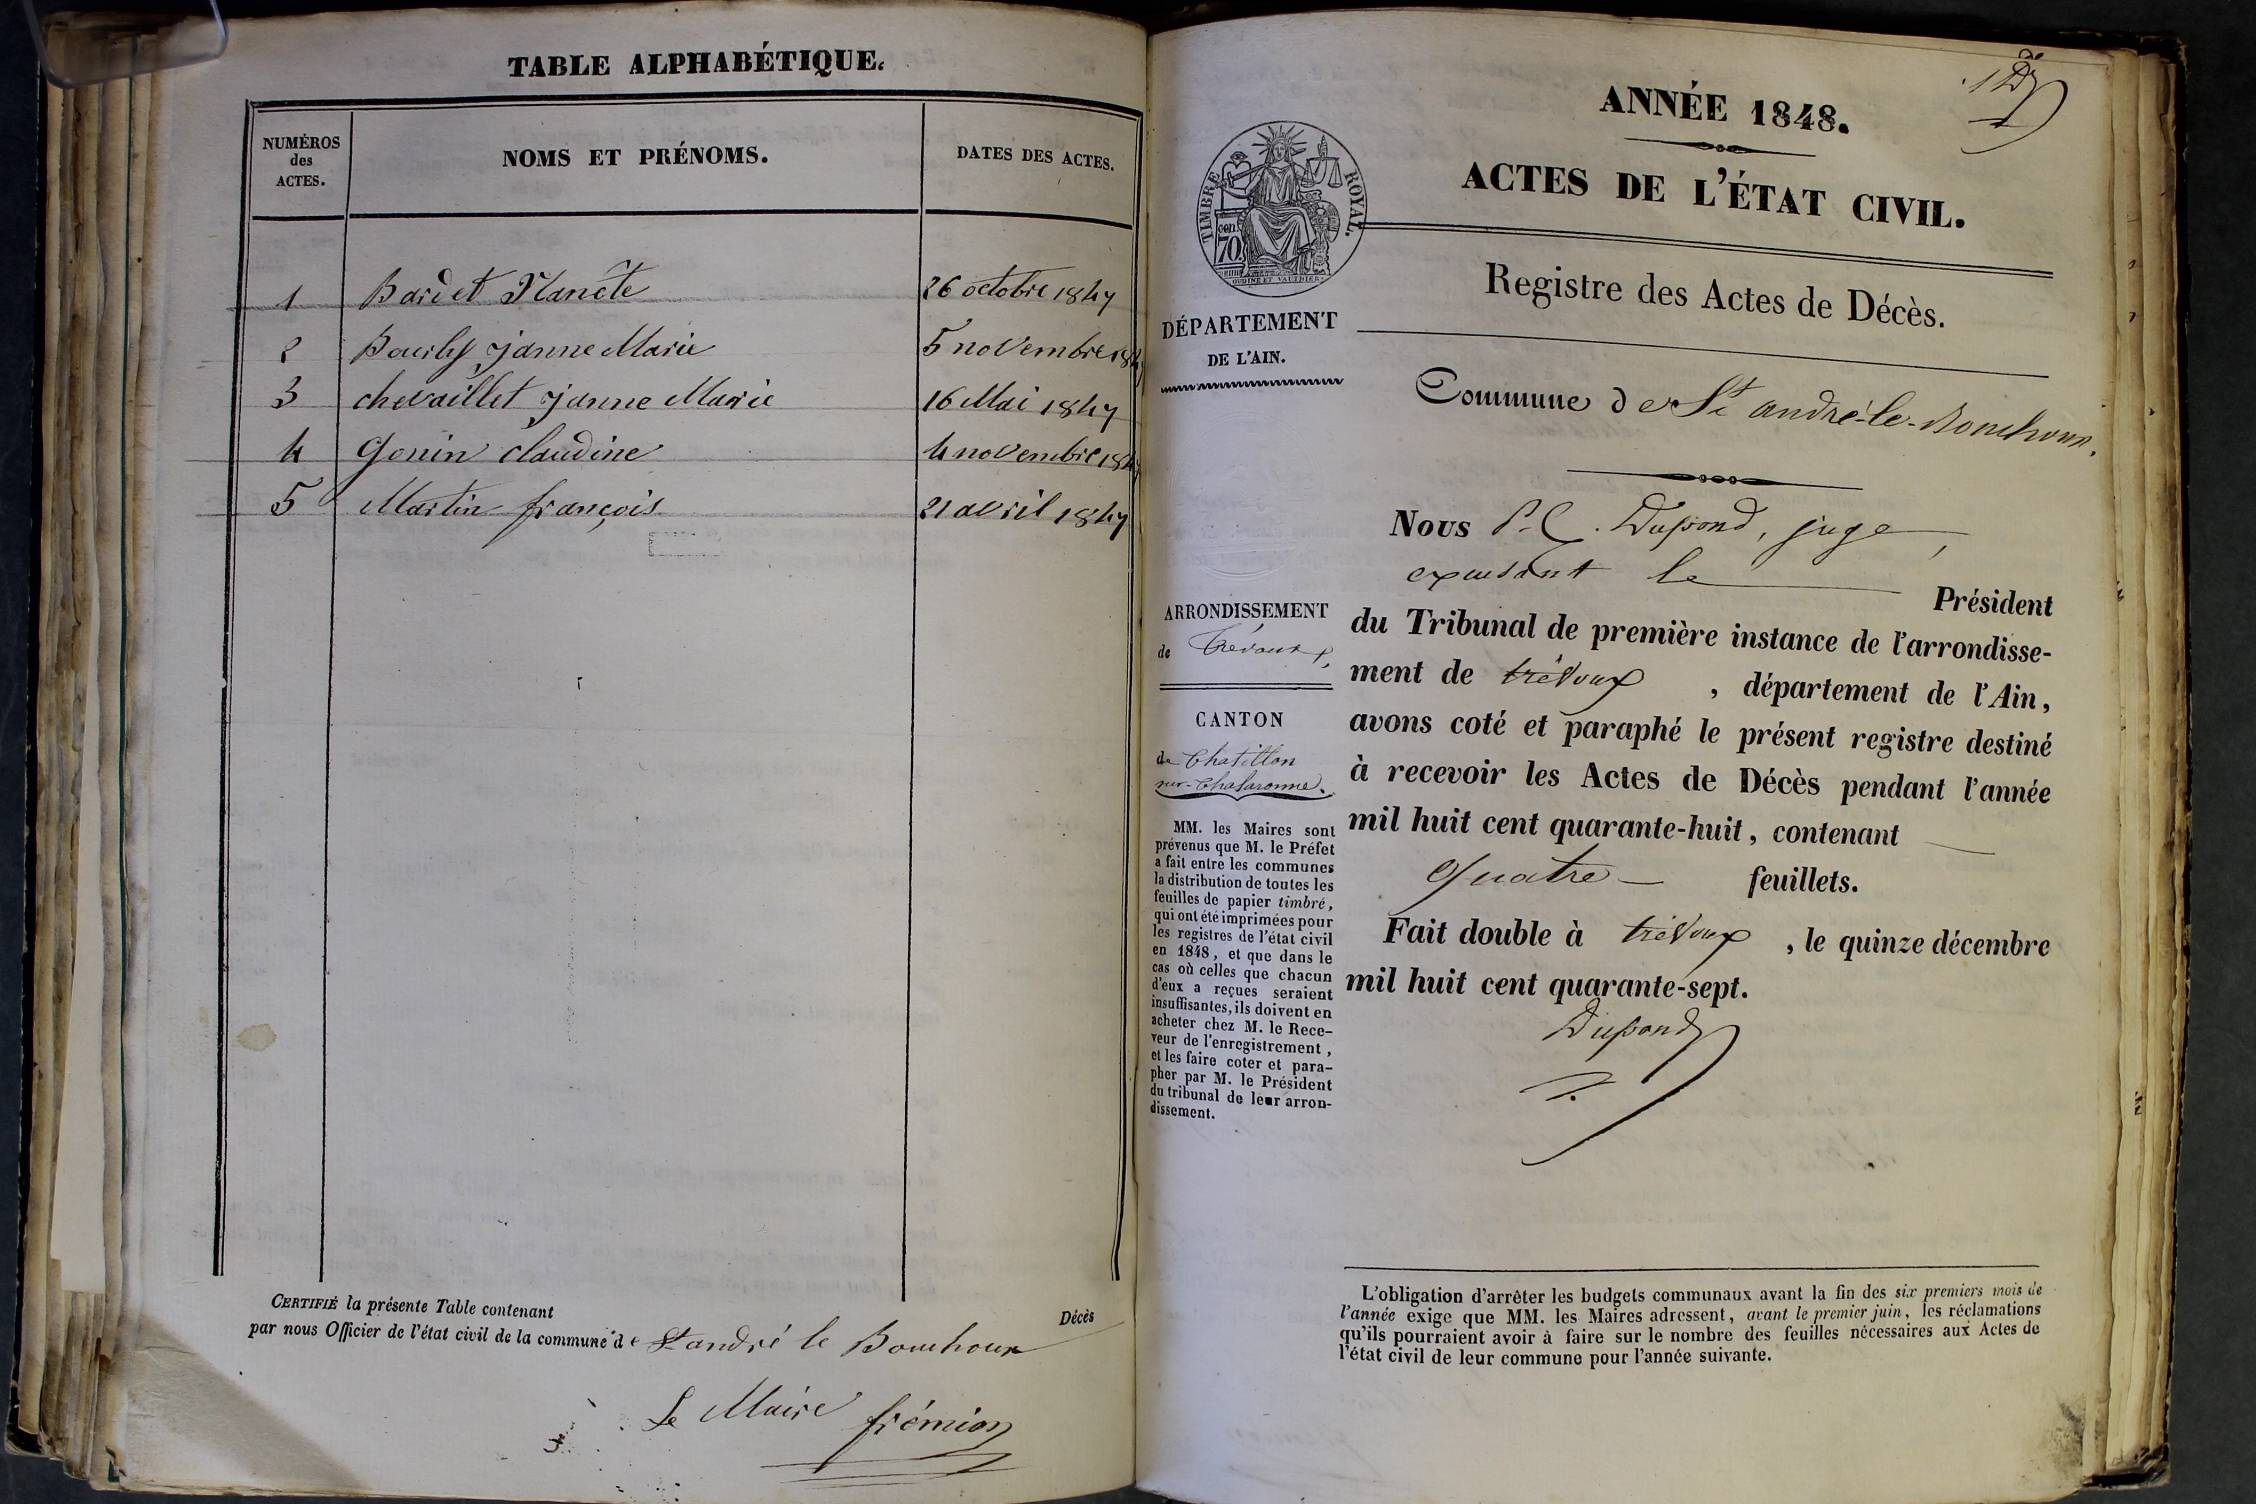 TABLE ALPHABÉTIQUE.
NUMÉROS
des
ACTES.
NOMS ET PRÉNOMS.
DATES DES ACTES.
1 Bardet 26 octobre 1847
2 janne Marie 5 novembre 184
3 chevaillet janne Marie 16 Mai 1847
4 Gonin claudine 4 novembre 184
5 Martin françois 21 avril 1847
CERTIFIÉ la présente Table contenant Décès
par nous Officier de l'état civil de la commune de St andré le Bouchoux
Le Maire frémion
ANNÉE 1848.
ACTES DE L'ÉTAT CIVIL.
TIMBRE ROYAL.
70
Registre des Actes de Décès.
DÉPARTEMENT
DE L'AIN.
Commune de St andré-le-Bouchoux.
Nous P. C. Dupond, juge,
excusant le Président
du Tribunal de première instance de l'arrondisse-
ment de trévoux , département de l'Ain,
avons coté et paraphé le présent registre destiné
à recevoir les Actes de Décès pendant l'année
mil huit cent quarante-huit, contenant
quatre feuillets.
Fait double à trévoux , le quinze décembre
mil huit cent quarante-sept.
Dupond
ARRONDISSEMENT
de Trévoux,
CANTON
de Chatillon
sur-Chalaronne.
MM. les Maires sont
prévenus que M. le Préfet
a fait entre les communes
la distribution de toutes les
feuilles de papier timbré,
qui ont été imprimées pour
les registres de l'état civil
en 1848, et que dans le
cas où celles que chacun
d'eux a reçues seraient
insuffisantes, ils doivent en
acheter chez M. le Rece-
veur de l'enregistrement,
et les faire coter et para-
pher par M. le Président
du tribunal de leur arron-
dissement.
L'obligation d'arrêter les budgets communaux avant la fin des six premiers mois de
l'année exige que MM. les Maires adressent, avant le premier juin, les réclamations
qu'ils pourraient avoir à faire sur le nombre des feuilles nécessaires aux Actes de
l'état civil de leur commune pour l'année suivante.